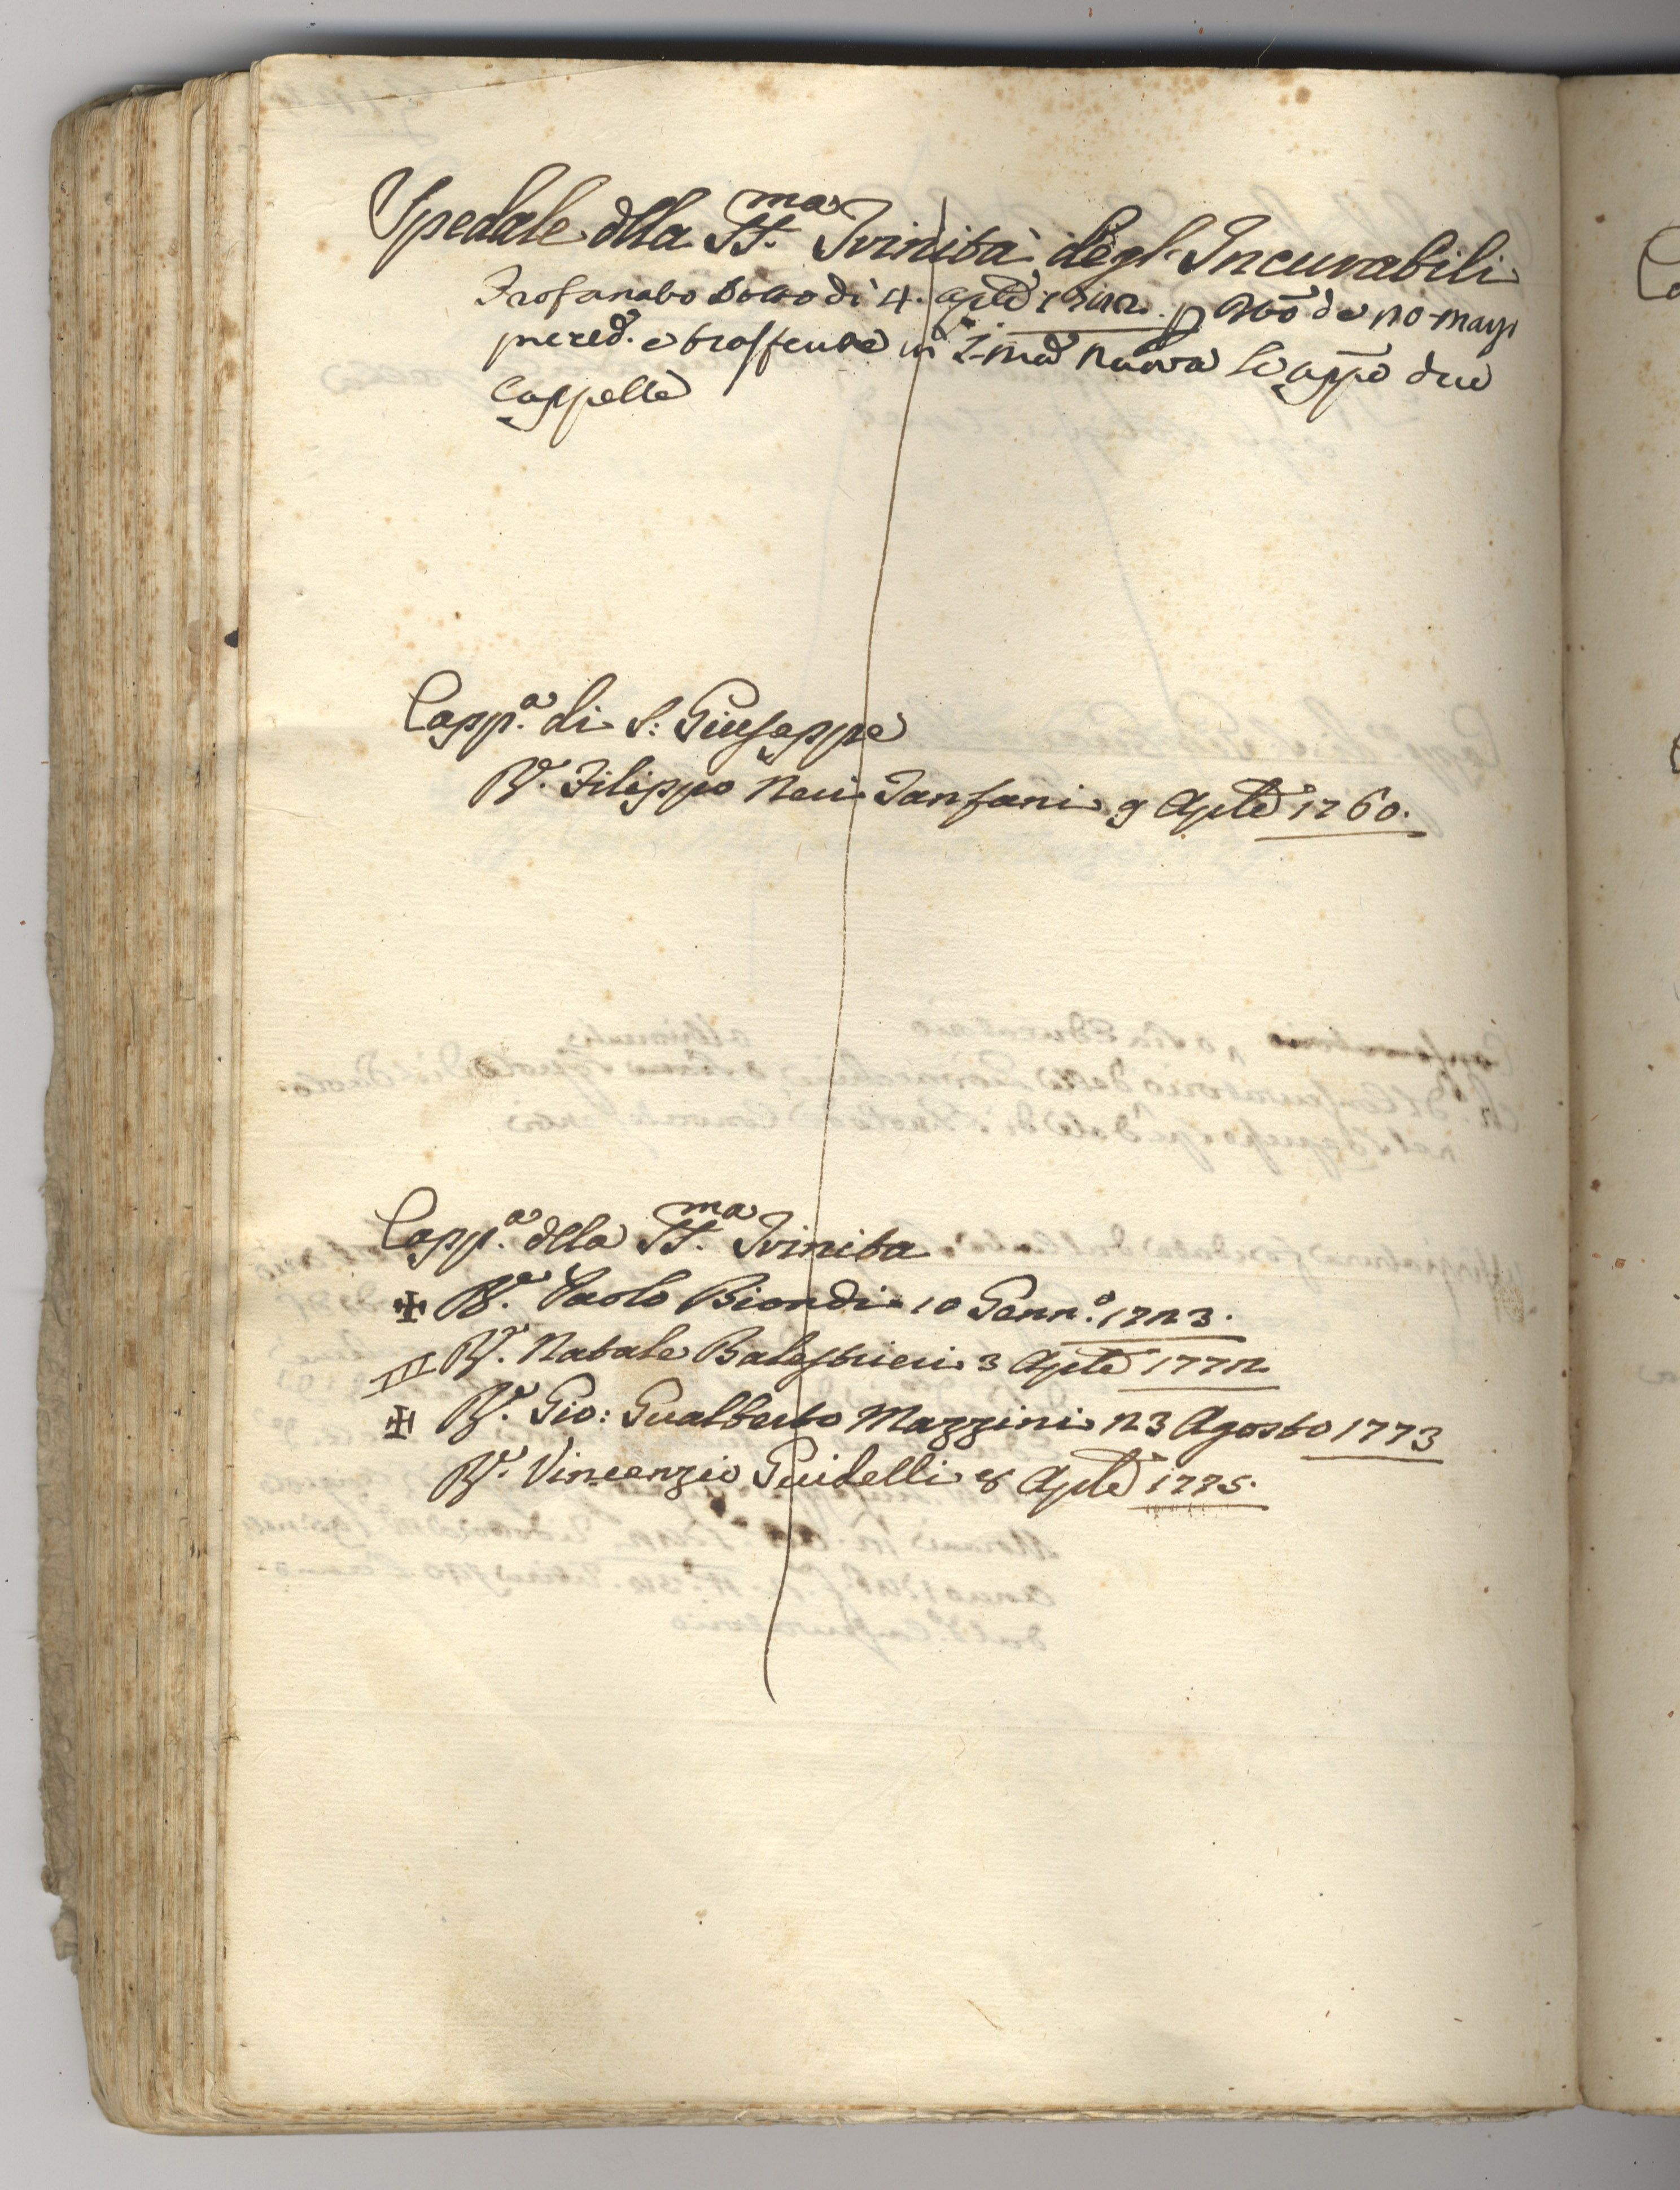 Spedale dlla SS.ma Trinita degl' Incurabili
Profanato sotto di 4. aple p de 20 magi
pñered. e trasferite in S. Ma Nuova le appe due
Cappelle
Capp.a di S. Giuseppe
R.e Filippo Neri Tanfani 9 Aple 1760.
Capp.a dlla SS.ma Trinita
R.e Paolo Biondi 10 Genn.o 1723.
R.e Natale Balestrieri 3 Aple 1772
R.e Gio: Gualberto Mazzini 23 Agosto 1773
R.e Vincenzio Guidelli 8 Aple 1775.